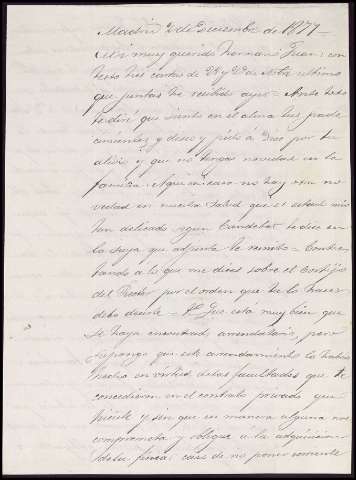 Madrid 2 de Diciembre de 1877
Mi muy querido hermano Juan: con
testo tus cartas de 28 y 29 de Nbre ultimo
que juntas he recibido ayer. Ante todo
te diré que siento en el alma tus pade
cimientos y deseo y pido a Dios por tu
alivio y que no tengas novedad en la
familia. Aqui en casa no hay otra no
vedad en nuestra salud que el estado mio
tan delicado segun Candelas te dice en
la suya que adjunta te remito. Contes
tando a lo que me dices sobre el Cortijo
del por el orden que tu lo haces
debo decirte. 1º Que está muy bien que
se haya encontrado arrendatario, pero
supongo que este arrendamiento lo habras
hecho en virtud de las facultades que te
concedieron en el contrato privado que
hiciste y sin que en manera alguna nos
comprometa y obligue a la adquisicion
de la finca, caso de no ponerse corriente